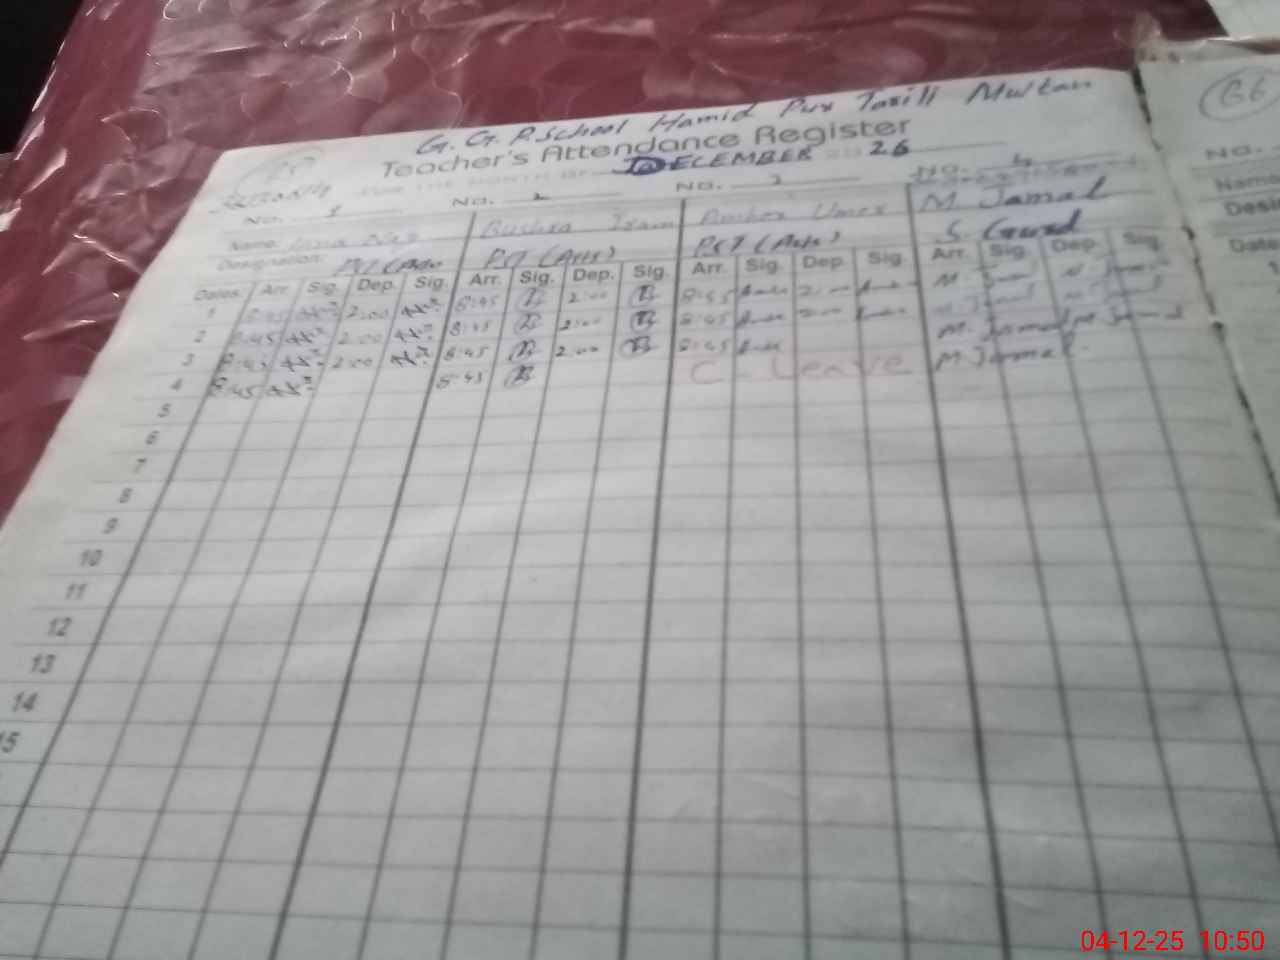 G. G. P. School Hamid Pur Tasill Multan
Teacher's Attendance Register
FOR THE MONTH OF DECEMBER 26
No. 1 No. 2 No. 3 No. 4
Name: Bushra Iram Amber Umer M Jamal
Designation: PST (Arts) PST (Arts) S. Guard
Dates. Arr. Sig. Dep. Sig. Arr. Sig. Dep. Sig. Arr. Sig. Dep. Sig. Arr. Sig. Dep. Sig.
1 8:45 2:00 8:45 2:00 8:45 2:00 M Jamal M. Jamal
2 8:45 2:00 8:45 2:00 8:45 2:00 M. Jamal M. Jamal
3 8:45 2:00 8:45 2:00 8:45 M. Jamal M. Jamal
4 8:45 8:45 C - Leave M. Jamal.
5
6
7
8
9
10
11
12
13
14
15
66
No.
Name
Desi
Date
1
04-12-25 10:50